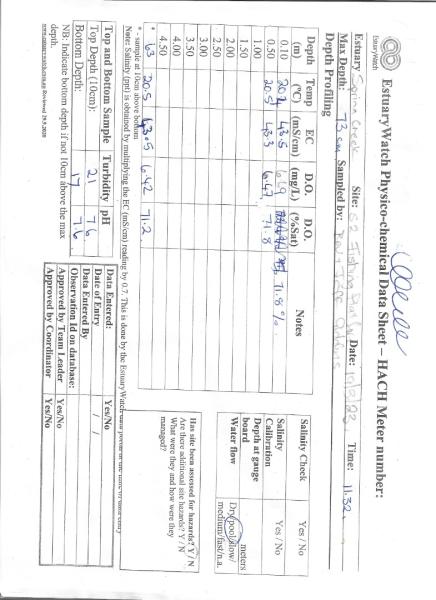 EstuaryWatch
EstuaryWatch Physico-chemical Data Sheet – HACH Meter number:
Estuary Spring Creek Site: S2 Fishing Date: 11/3/23 Time: 11.32
Max Depth: 73 cm Sampled by:
Depth Profiling
Depth (m) Temp (°C) EC (mS/cm) D.O. (mg/L) D.O. (%Sat) Notes
0.10 43.5 71.8 %
0.50 20.5 43.3 6.47 71.8
1.00
1.50
2.00
2.50
3.00
3.50
4.00
4.50
* 63 20.5 43.5 6.42 71.2
* - sample at 10cm above bottom
Note: Salinity (ppt) is obtained by multiplying the EC (mS/cm) reading by 0.7. This is done by the EstuaryWatch
Salinity Check Yes / No
Salinity Calibration Yes / No
Depth at gauge board meters
Water flow Dry/pool/slow/medium/fast/n.a.
Has site been assessed for hazards? Y / N
Are there additional site hazards? Y / N
What were they and how were they managed?
Top and Bottom Sample Turbidity pH
Top Depth (10cm): 21 7.6
Bottom Depth: 17 7.6
NB: Indicate bottom depth if not 10cm above the max depth.
Data Entered: Yes/No
Date of Entry / /
Data Entered By
Observation Id on database:
Approved by Team Leader Yes/No
Approved by Coordinator Yes/No